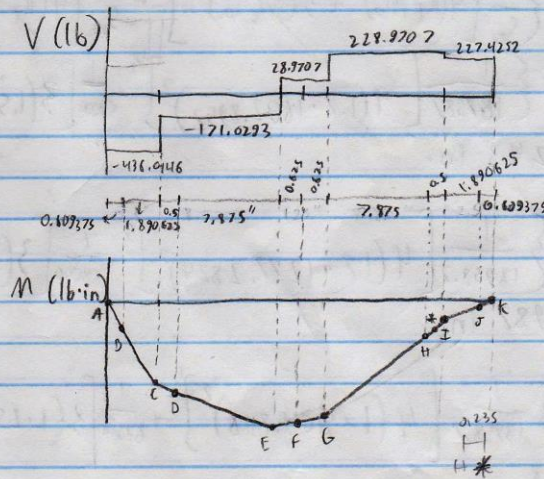 V (lb)
228.9707
227.4252
28.9707
-171.0293
-436.0946
0.625
0.625
0.5
1.890625
0.609375
1.890625
0.5
7.875"
7.875
0.609375
M (lb·in)
A
B
C
D
E
F
G
H
*
I
J
K
0.235
H *